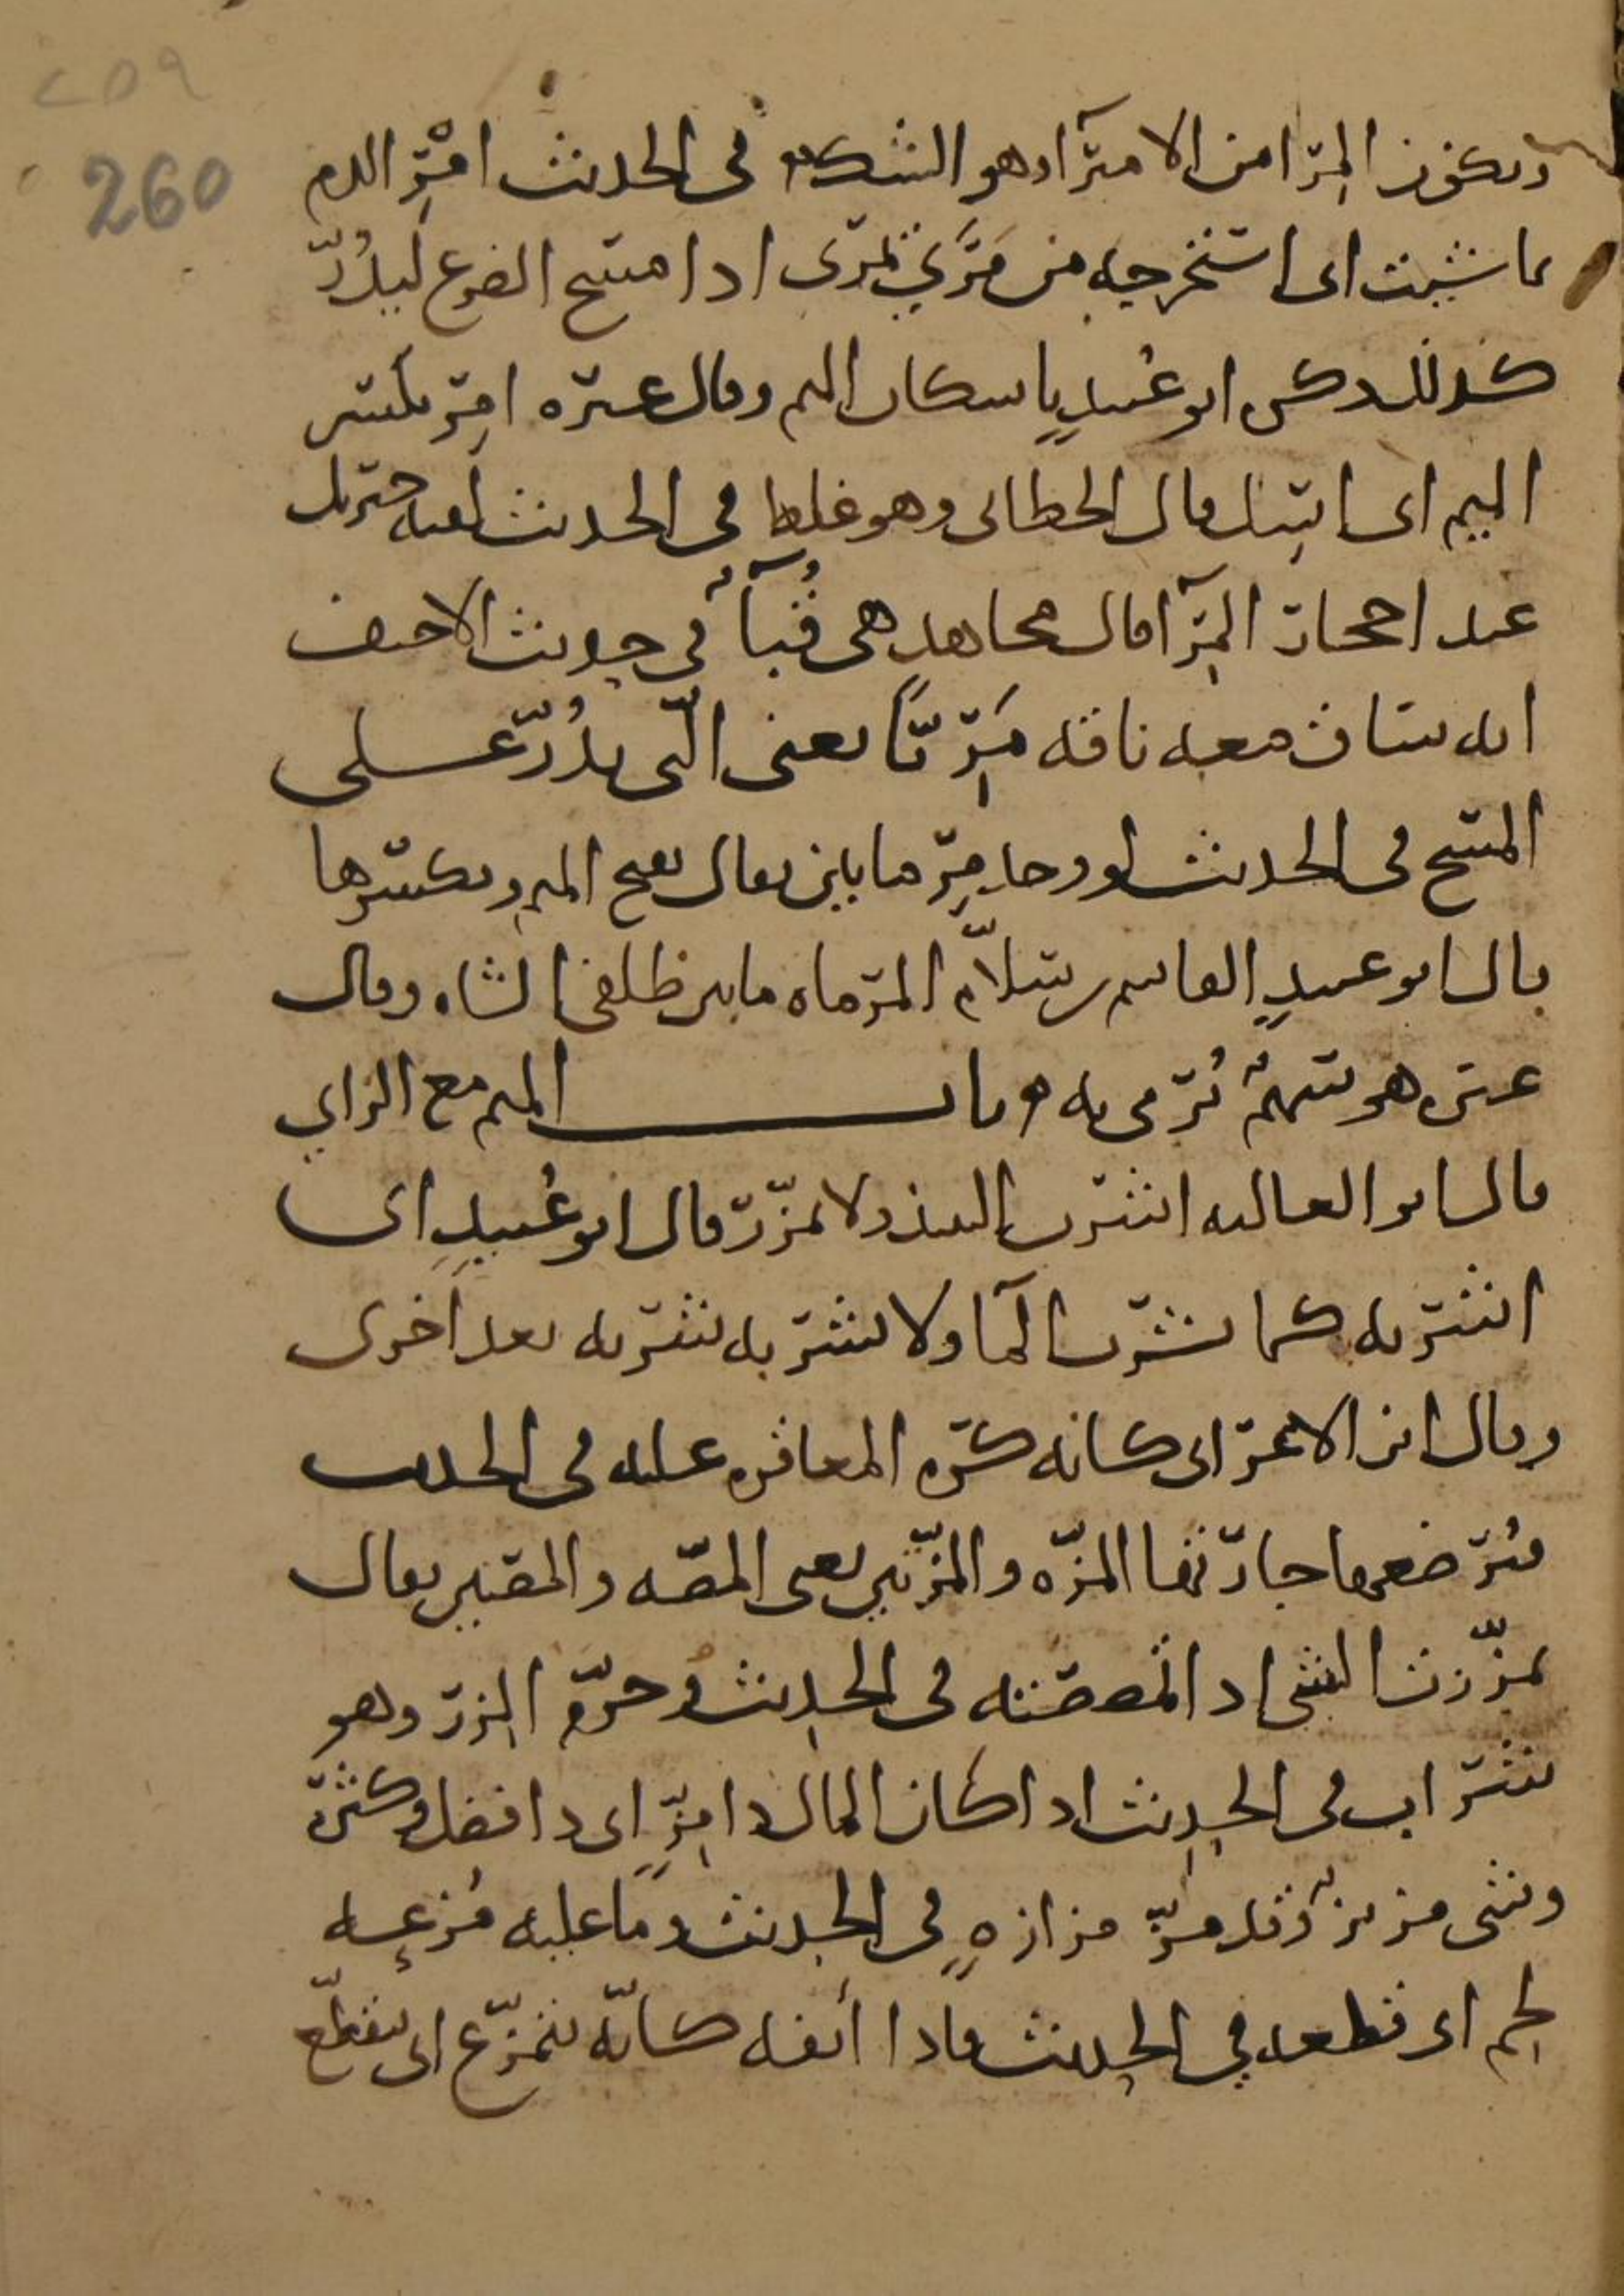 ٢٥٩
260
ويكون المرا من الامترآ وهو الشك في الحديث امْرِ الدم
بما شيت اي استخرجه من مَرَي يمري اذا مسح الضرع ليدُرّ
كذلك ذكره ابو عُبيدٍ باسكان الميم وقال غيره امِرّ بكسر
الميم اي اسل قال الخطابي وهو غلط في الحديث لقيه جبريل
عند احجار المِرآ قال مجاهد هي قُبآءُ في حديث الاحنف
انه ساق معه ناقه مَرِيًّا يعني التي يدُرّ على
المسح في الحديث لو وجد مِرماتين يقال بفتح الميم وبكسرها
قال ابو عبيدٍ القاسم بن سلاّم المرماه ما بين ظلفي الشاه وقال
غيره هو سهمٌ يُرمي به ه باب الميم مع الزاي
قال ابو العاليه اشرب النبيذ ولا تمزّر قال ابو عُبيدٍ اي
اشربه كما تشرب المآ ولا تشربه شربه بعد اخرى
وقال ابن الاعرابي كانه كره المعاقره عليه في الحديث
فترضعها جارتها المزّه والمزّتين يعني المصّه والمصّتين يقال
تمزّزت الشي اذا تمصصته في الحديث وحرّم المِزر وهو
شراب في الحديث اذا كان المال ذا مِزٍّ اي ذا فضل وكثره
وشي مزيزٌ وقد مَزّ مزازهٍ في الحديث وما عليه مُزعه
لحم اي قطعه في الحديث فاذا أنفه كانّه يتمزّع اي يتقطّع